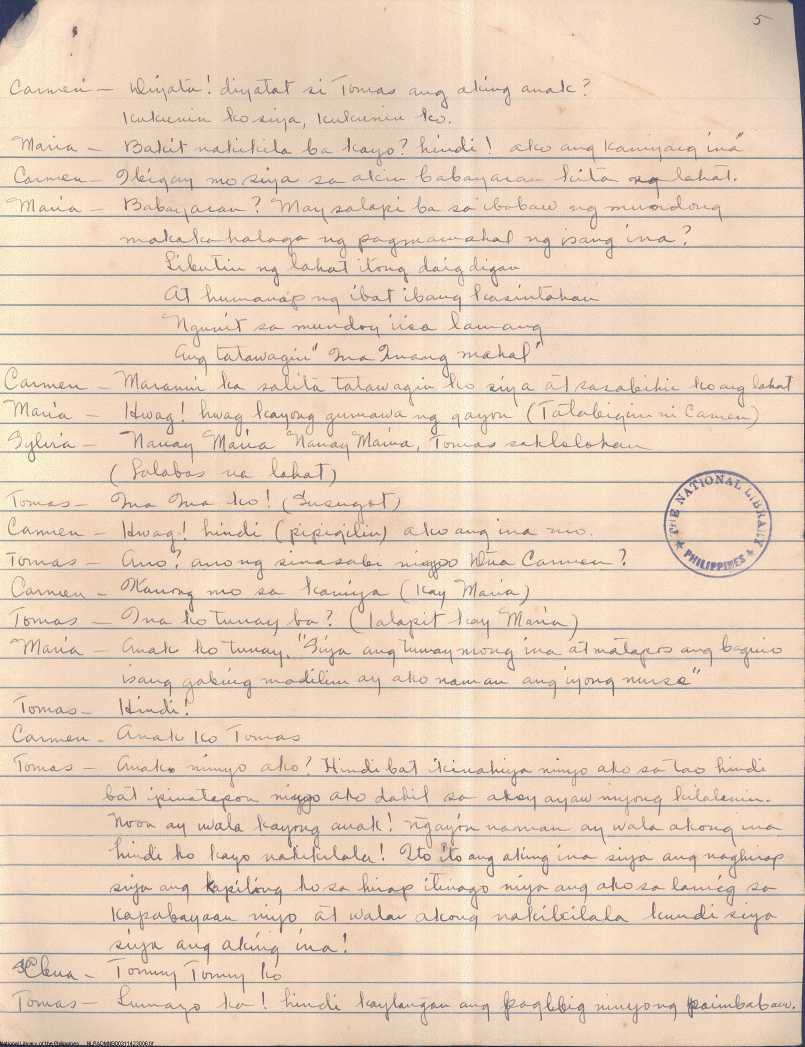 5
Carmen — Diyata! diyatat si Tomas ang aking anak?
Kukunin ko siya, kukunin ko.
Maria — Bakit nakikila ba kayo? hindi! ako ang kaniyang ina"
Carmen — Ibigay mo siya sa akin babayaran kita ng lahat.
Maria — Babayaran? May salapi ba sa ibabaw ng mundong
makakahalaga ng pagmamahal ng isang ina?
Libutin ng lahat itong daigdigan
At humanap ng ibat ibang kasintahan
Ngunit sa mundoy iisa lamang
Ang tatawagin "Ina Inang mahal"
Carmen — Marami ka salita tatawagin ko siya at sasabihin ko ang lahat
Maria — Hwag! hwag kayong gumawa ng gayon (Talabigin ni Camen)
Sylvia — Nanay Maria Nanay Maria, Tomas saklolohan
(Lalabas na lahat)
Tomas — Ina Ina ko! (Susugot)
Carmen — Hwag! hindi (pipigilin) ako ang ina mo.
Tomas — Ano? anong sinasabi ninyo Dña Carmen?
Carmen — Itanong mo sa kaniya (Kay Maria)
Tomas — Ina ko tunay ba? (lalapit kay Maria)
Maria — Anak ko tunay. "Siya ang tunay mong ina at matapos ang bagiuo
isang gabing madilim ay ako naman ang iyong nurse"
Tomas — Hindi!
Carmen — Anak ko Tomas
Tomas — Anak ninyo ako? Hindi bat ikinahiya ninyo ako sa tao hindi
bat ipinatapon ninyo ako dahil sa akoy ayaw niyong kilalanin.
Noon ay wala kayong anak! ngayon naman ay wala akong ina
hindi ko kayo nakikilala! Ito ito ang aking ina siya ang naghirap
siya ang kapiling ko sa hirap itinago niya ang ako sa lamig sa
kapabayaan niyo at walan akong nakikilala kundi siya
siya ang aking ina!
Tommy Tommy ko
Tomas — Lumayo ka! hindi kaylangan ang pagibig ninyong paimbabaw.
THE NATIONAL LIBRARY
PHILIPPINES
National Library of the Philippines